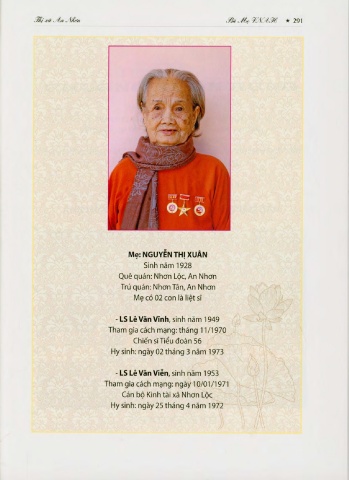 Thị xã An Nhơn
Bà Mẹ VNAH ★ 291
Mẹ: NGUYỄN THỊ XUÂN
Sinh năm 1928
Quê quán: Nhơn Lộc, An Nhơn
Trú quán: Nhơn Tân, An Nhơn
Mẹ có 02 con là liệt sĩ
- LS Lê Văn Vĩnh, sinh năm 1949
Tham gia cách mạng: tháng 11/1970
Chiến sĩ Tiểu đoàn 56
Hy sinh: ngày 02 tháng 3 năm 1973
- LS Lê Văn Viễn, sinh năm 1953
Tham gia cách mạng: ngày 10/01/1971
Cán bộ Kinh tài xã Nhơn Lộc
Hy sinh: ngày 25 tháng 4 năm 1972